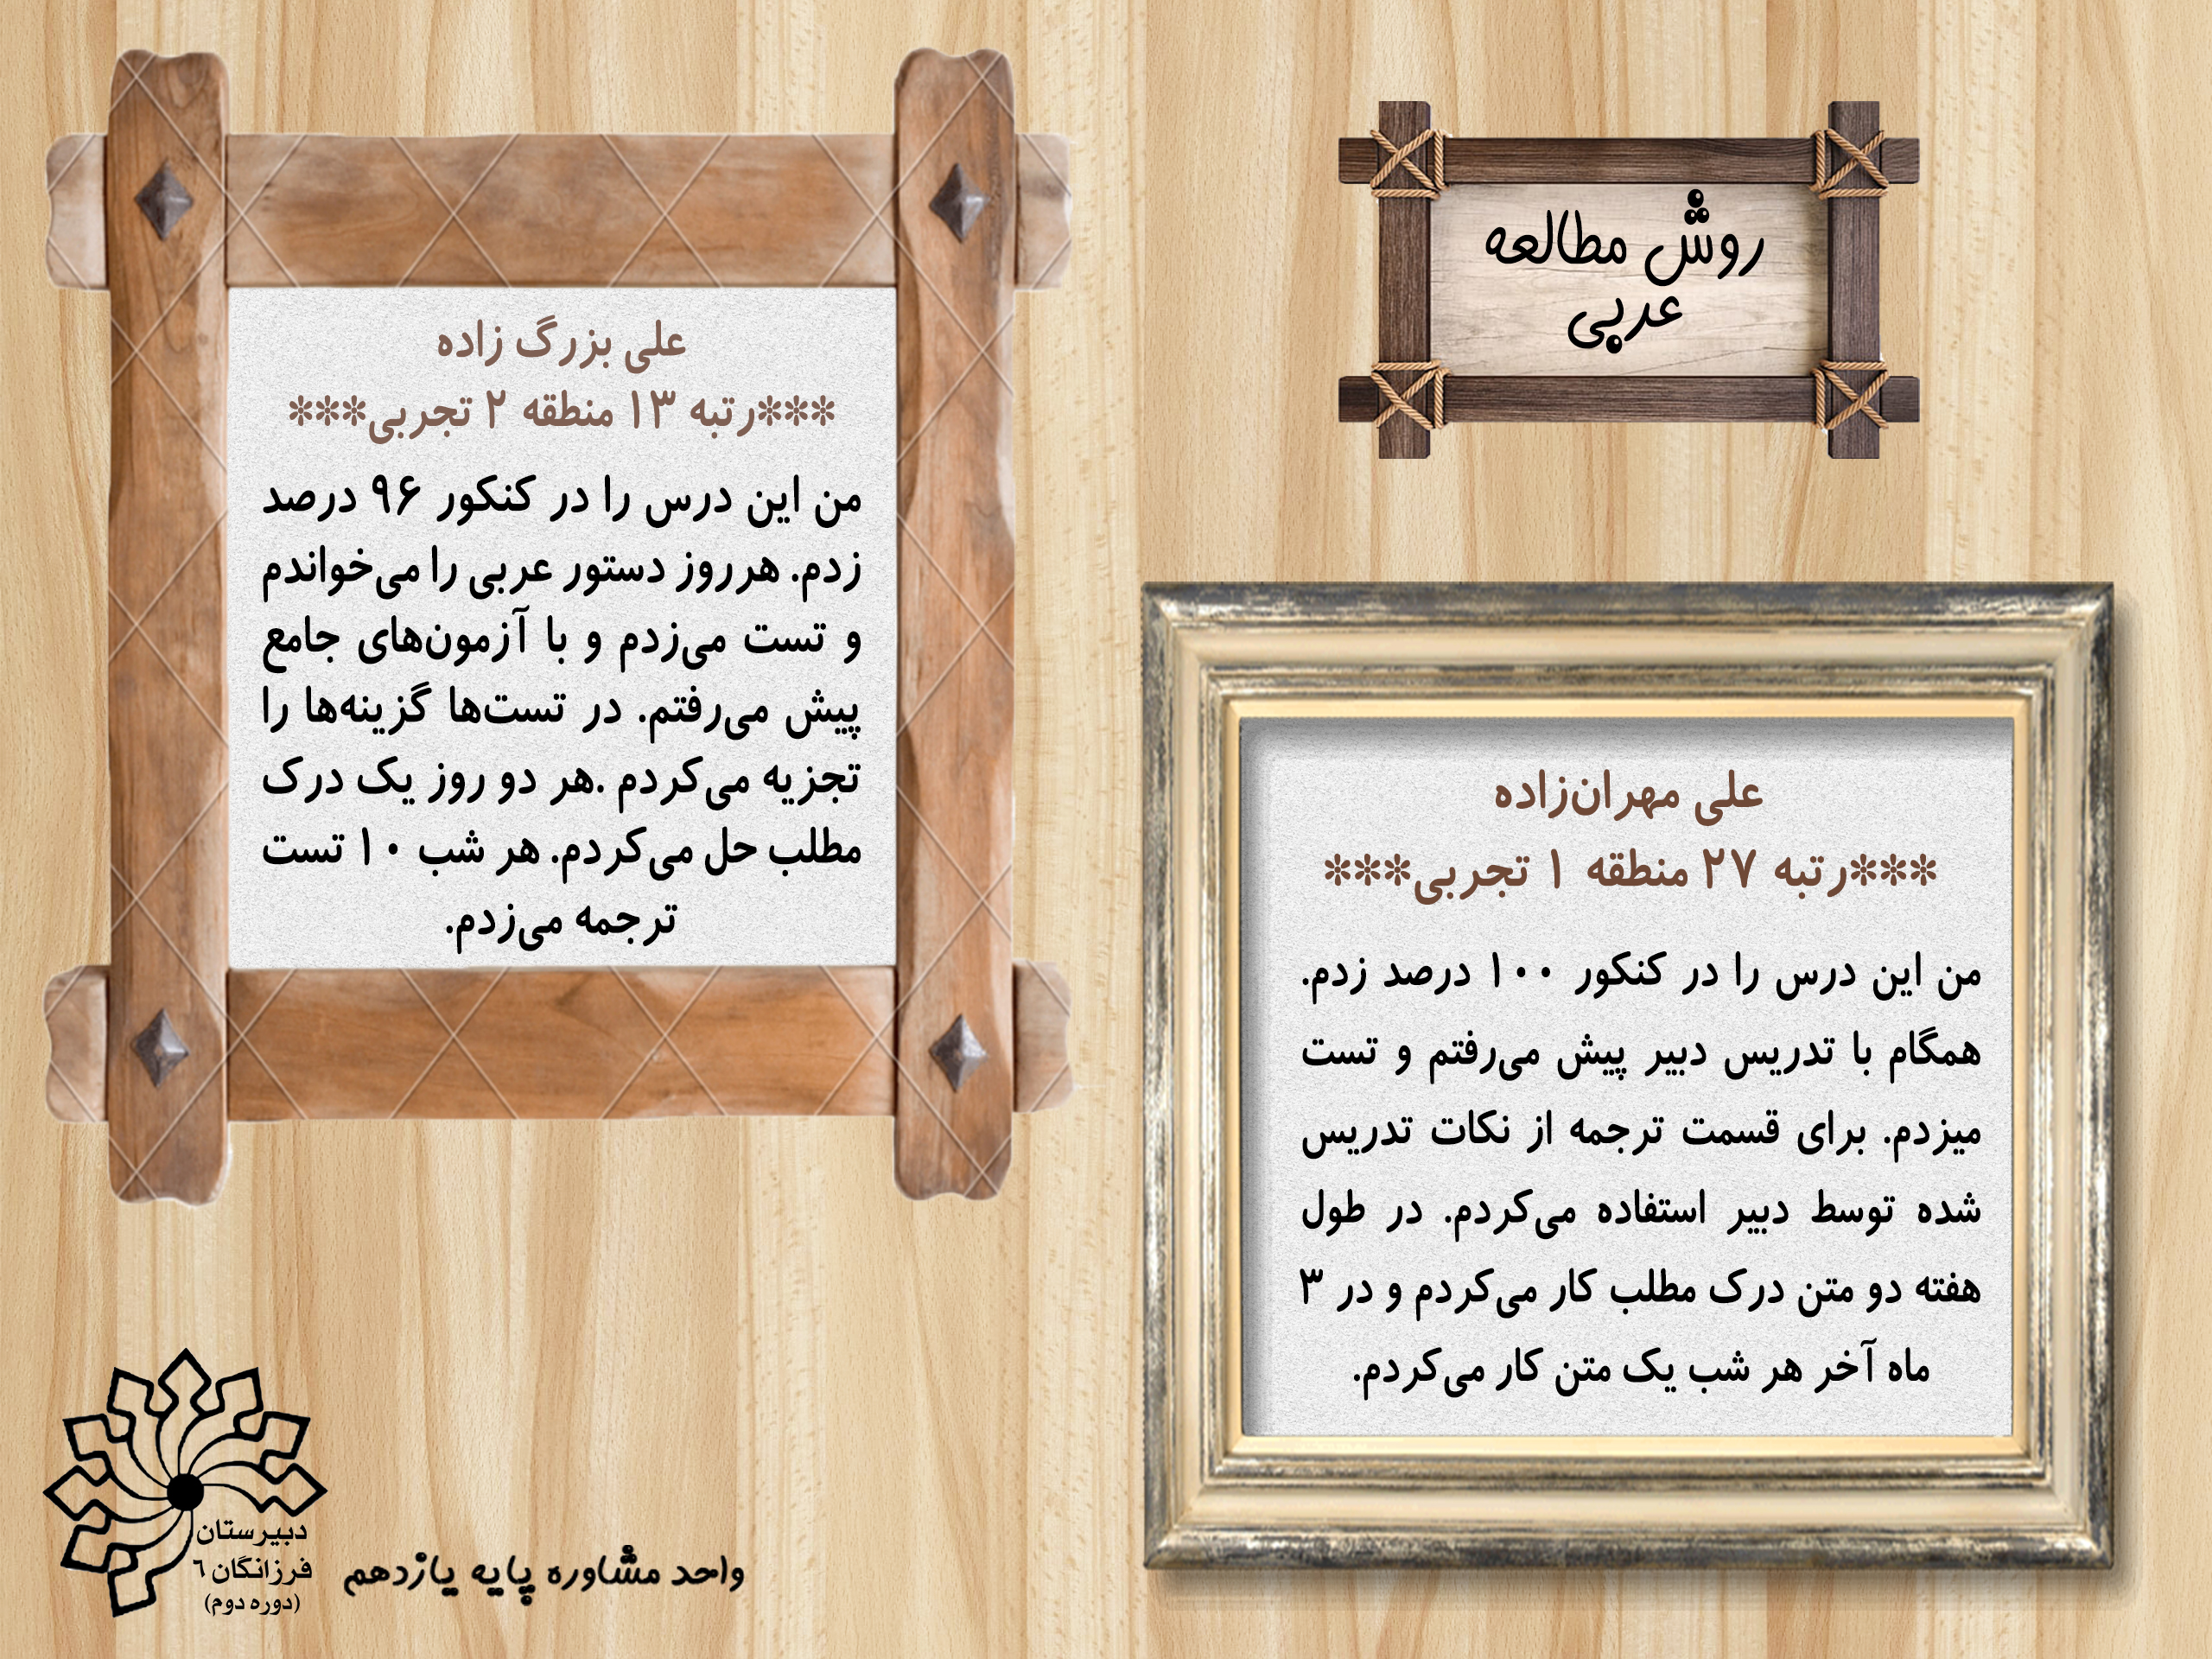 روش مطالعه
عربی
علی مهران‌زاده
***رتبه ۲۷ منطقه ۱ تجربی***
من این درس را در کنکور ۱۰۰ درصد زدم.
همگام با تدریس دبیر پیش می‌رفتم و تست
میزدم. برای قسمت ترجمه از نکات تدریس
شده توسط دبیر استفاده می‌کردم. در طول
هفته دو متن درک مطلب کار می‌کردم و در ۳
ماه آخر هر شب یک متن کار می‌کردم.
علی بزرگ زاده
***رتبه ۱۳ منطقه ۲ تجربی***
من این درس را در کنکور ۹۶ درصد
زدم. هرروز دستور عربی را می‌خواندم
و تست می‌زدم و با آزمون‌های جامع
پیش می‌رفتم. در تست‌ها گزینه‌ها را
تجزیه می‌کردم .هر دو روز یک درک
مطلب حل می‌کردم. هر شب ۱۰ تست
ترجمه می‌زدم.
دبیرستان
فرزانگان ٦
(دوره دوم)
واحد مشاوره پایه یازدهم